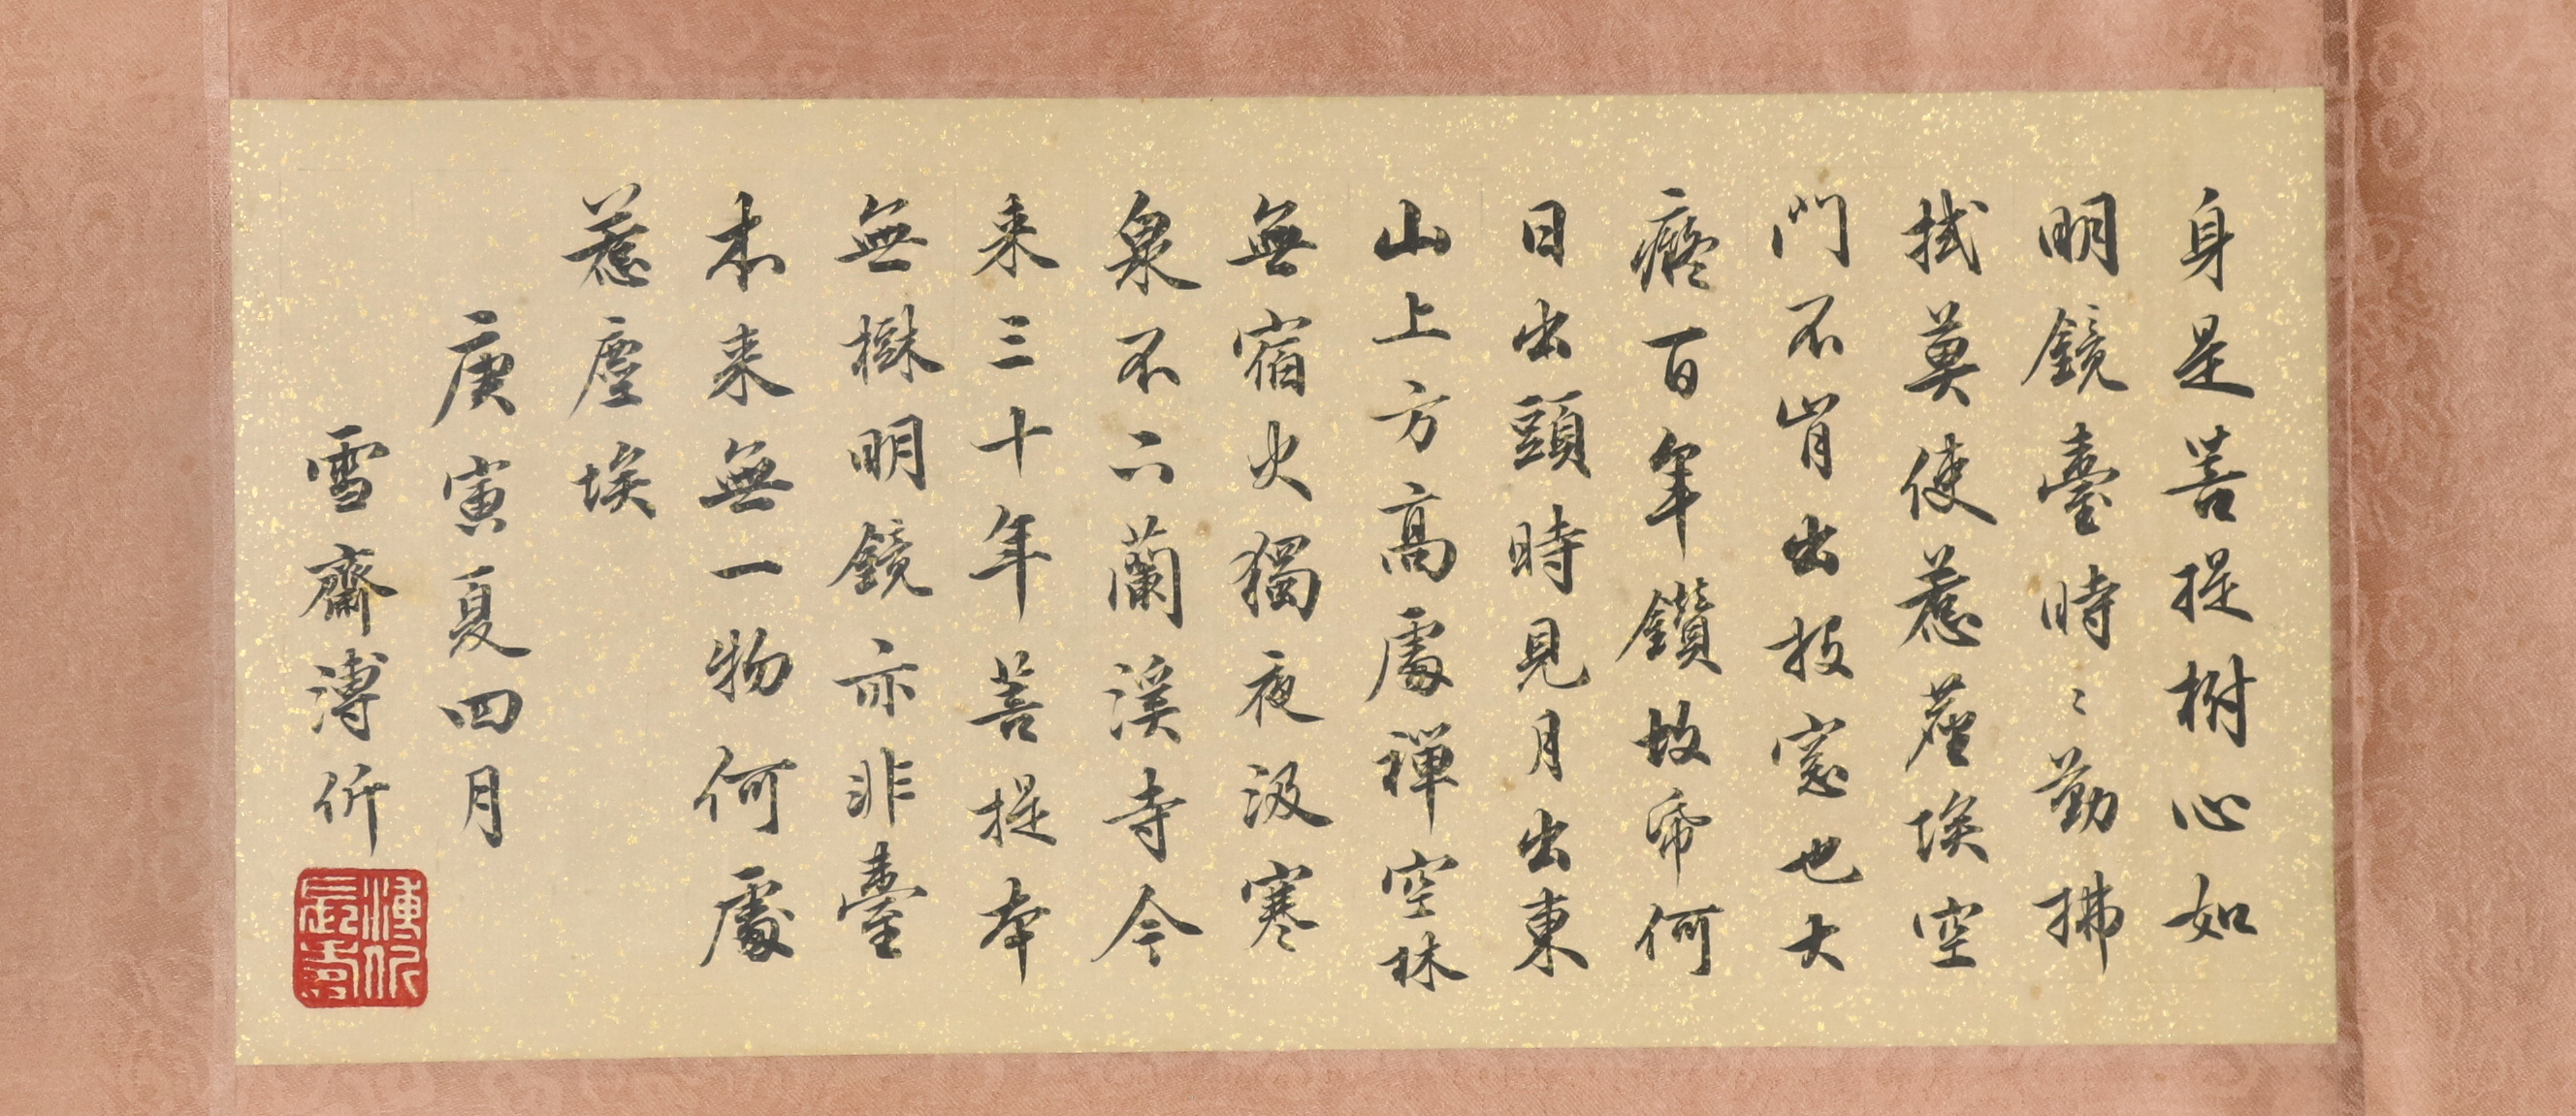 身是菩提樹心如
明鏡臺時〻勤拂
拭莫使惹塵埃空
門不肯出投窓也大
癡百年鑽故帋何
日出頭時見月出東
山上方高處禪空林
無宿火獨夜汲寒
泉不二蘭溪寺今
来三十年菩提本
無樹明鏡亦非臺
本来無一物何處
惹塵埃
庚寅夏四月
雪齋溥伒